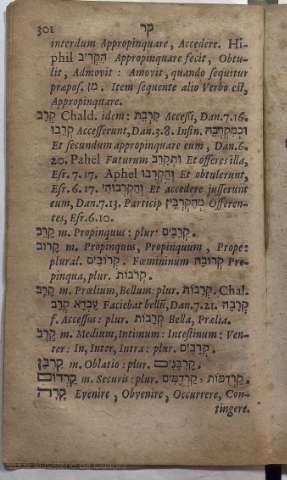 301 קר
interdum Appropinquare, Accedere. Hi-
phil הִקְרִיב Appropinquare fecit, Obtu-
lit, Admovit: Amovit, quando sequitur
præpos. מן. Item sequente alio Verbo est,
Appropinquare.
קָרַב Chald. idem: קִרְבֵת Accessi, Dan.7.16.
קְרִבוּ Accesserunt, Dan.3.8. Infin. וּכְמִקְרְבֵהּ
Et secundum appropinquare eum, Dan.6.
20. Pahel Futurum וּתְקָרֵב Et offeres illa,
Esr.7.17. Aphel וְהַקְרִבוּ Et obtulerunt,
Esr.6.17. וְהַקְרְבוּהִי Et accedere jusserunt
eum, Dan.7.13. Particip מְהַקְרְבִין Offeren-
tes, Esr.6.10.
קָרֵב m. Propinquus: plur. קְרֵבִים.
קָרוֹב m. Propinquus, Propinquum, Prope:
plural. קְרוֹבִים. Fœmininum קְרוֹבָה Pro-
pinqua, plur. קְרֹבוֹת.
קְרָב m. Prælium, Bellum: plur. קְרָבוֹת. Chal.
קְרָב עָבְדָא Faciebat bellũ, Dan.7.21. קִרְבָה
f. Accessia: plur. קְרָבוֹת Bella, Prælia.
קֶרֶב m. Medium, Intimum: Intestinum: Ven-
ter: In, Inter, Intra: plur. קְרָבִים.
קָרְבָּן m. Oblatio: plur. קָרְבָּנִים.
קַרְדֹּם m. Securis: plur. קַרְדֻּמּוֹת, קַרְדֻּמִּים.
קָרָה Evenire, Obvenire, Occurrere, Con-
tingere.